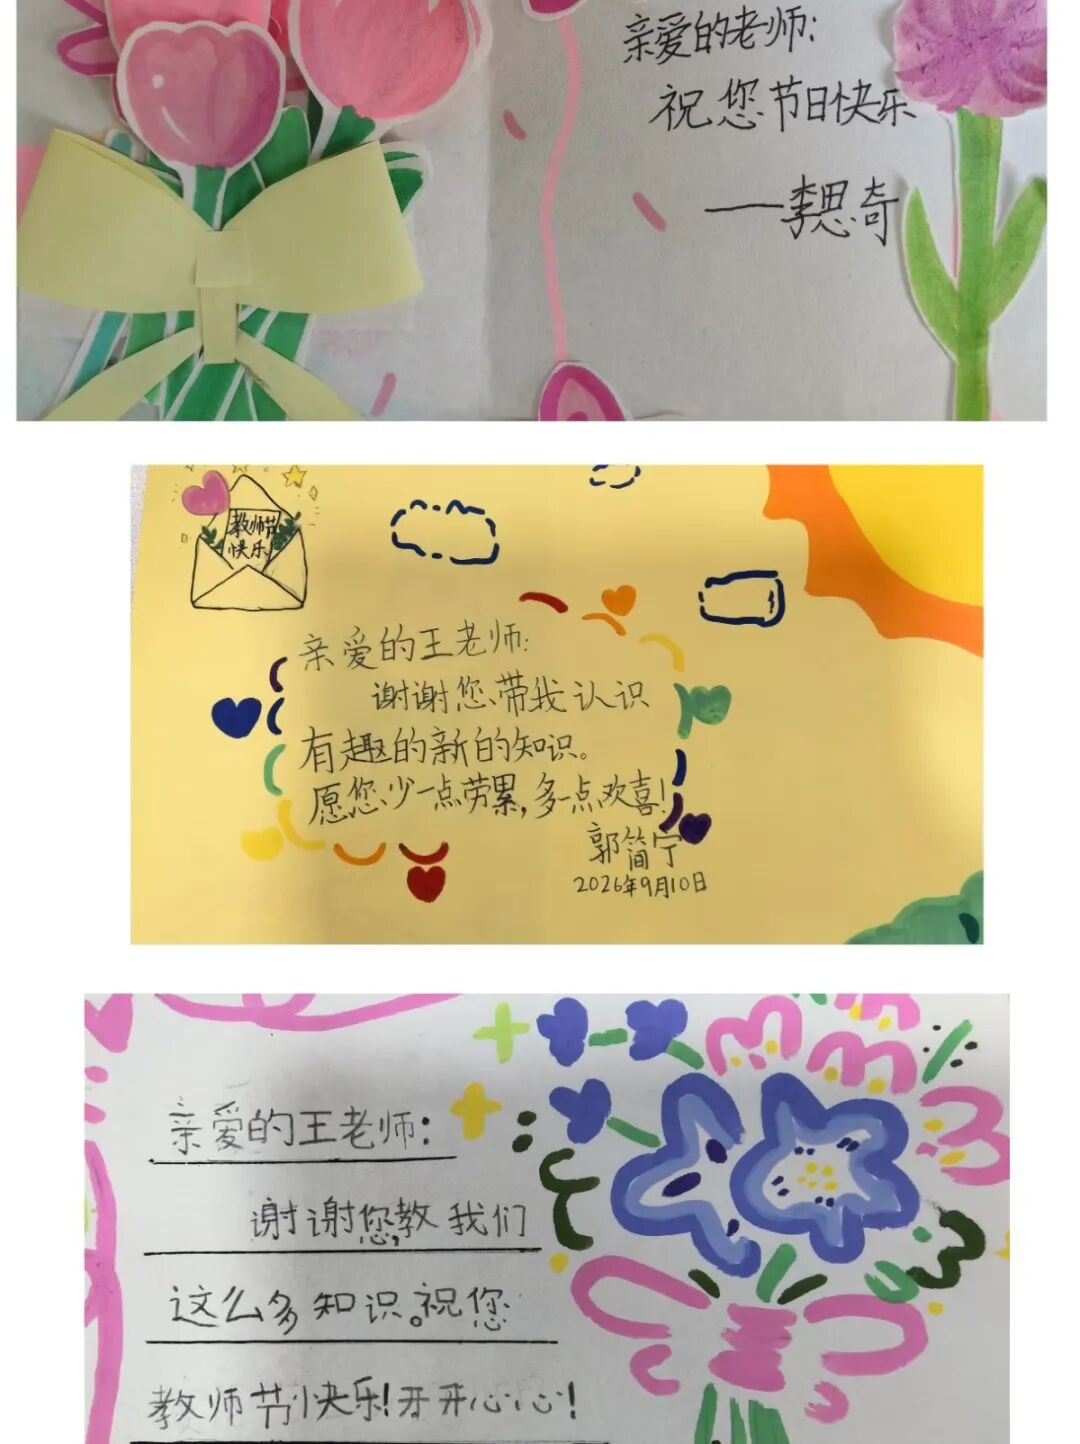 亲爱的老师:
祝您节日快乐
——李思奇
教师节
快乐
亲爱的王老师:
谢谢您带我认识
有趣的新的知识。
愿您少一点劳累,多一点欢喜!
郭简宁
2026年9月10日
亲爱的王老师:
谢谢您,教我们
这么多知识。祝您
教师节快乐!开开心心!